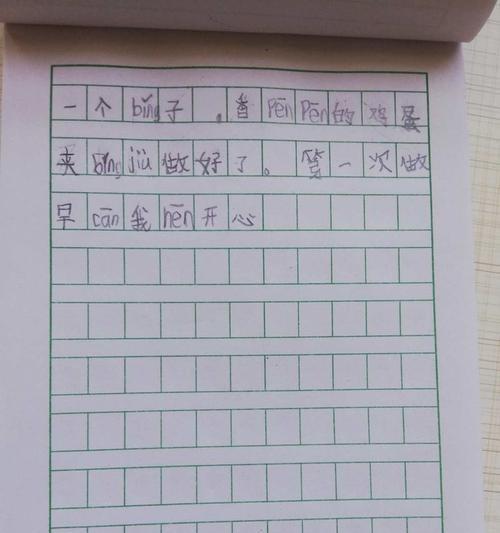 一个bǐng子，香pēnpēn的鸡蛋
夹bǐngjiù做好了。第一次做
早cān我hěn开心